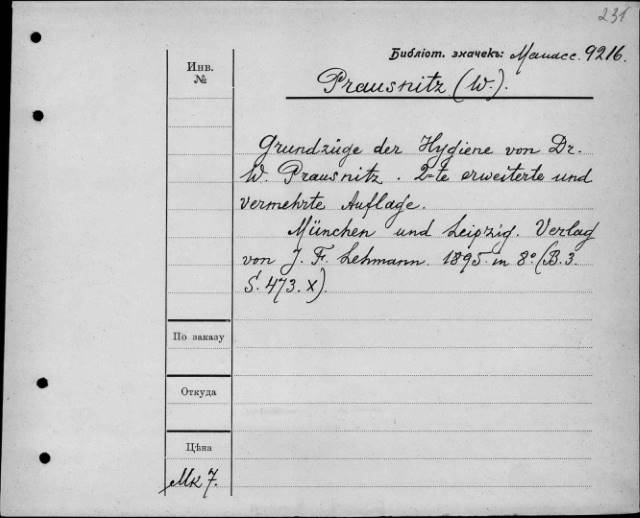 231
Библіот. значекъ: Манасс. 9216.
Инв.
№
Prausnitz (W.).
Grundzüge der Hygiene von Dr.
W. Prausnitz. 2-te erweiterte und
vermehrte Auflage.
München und Leipzig. Verlag
von J. F. Lehmann. 1895. in 8º (B. 3.
S. 473. X).
По заказу
Откуда
Цѣна
Мк 7.